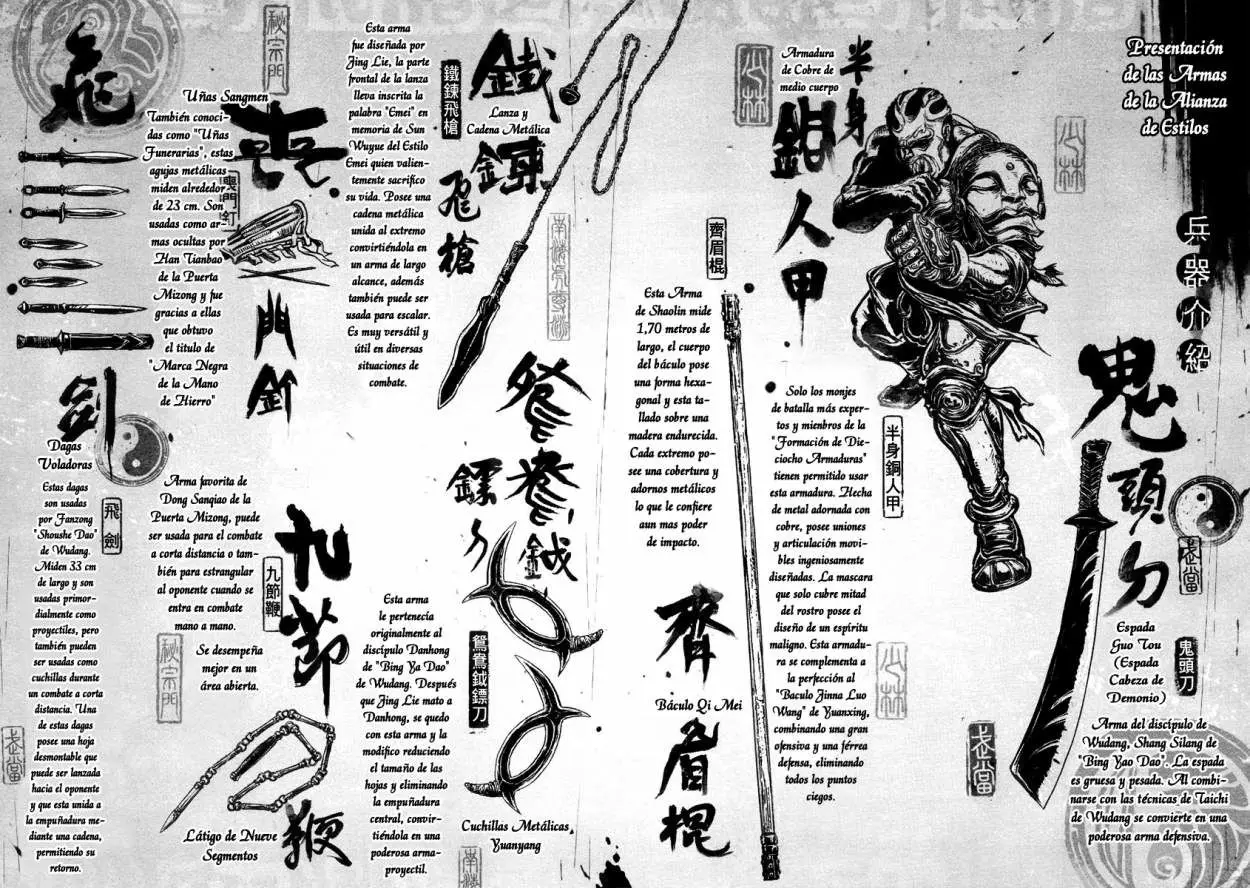 Presentación
de las Armas
de la Alianza
de Estilos
兵器介紹
鬼頭刀
武當
Espada
Guo Tou
(Espada
Cabeza de
Demonio)
鬼頭刀
Arma del discípulo de
Wudang, Shang Silang de
"Bing Yao Dao". La espada
es gruesa y pesada. Al combi-
narse con las técnicas de Taichi
de Wudang se convierte en una
poderosa arma defensiva.
武當
少林
半身
銅人甲
少林
Armadura
de Cobre de
medio cuerpo
半身銅人甲
Solo los monjes
de batalla más exper-
tos y mienbros de la
"Formación de Die-
ciocho Armaduras"
tienen permitido usar
esta armadura. Hecha
de metal adornada con
cobre, posee uniones
y articulación movi-
bles ingeniosamente
diseñadas. La mascara
que solo cubre mitad
del rostro posee el
diseño de un espíritu
maligno. Esta armadu-
ra se complementa a
la perfección al
"Baculo Jinna Luo
Wang" de Yuanxing,
combinando una gran
ofensiva y una férrea
defensa, eliminando
todos los puntos
ciegos.
少林
齊眉棍
Esta Arma
de Shaolin mide
1,70 metros de
largo, el cuerpo
del báculo pose
una forma hexa-
gonal y esta ta-
llado sobre una
madera endurecida.
Cada extremo po-
see una cobertura y
adornos metálicos
lo que le confiere
aun mas poder
de impacto.
齊
Báculo Qi Mei
眉棍
鐵鍊飛槍
鐵鍊飛槍
Lanza y
Cadena Metálica
Esta arma
fue diseñada por
Jing Lie, la parte
frontal de la lanza
lleva inscrita la
palabra "Emei" en
memoria de Sun
Wuyue del Estilo
Emei quien valien-
temente sacrifico
su vida. Posee una
cadena metálica
unida al extremo
convirtiéndola en
un arma de largo
alcance, además
también puede ser
usada para escalar.
Es muy versátil y
útil en diversas
situaciones de
combate.
鴛鴦鉞
鏢刀
鴛鴦鉞鏢刀
Esta arma
le pertenecía
originalmente al
discípulo Danhong
de "Bing Ya Dao"
de Wudang. Después
que Jing Lie mato a
Danhong, se quedo
con esta arma y la
modifico reduciendo
el tamaño de las
hojas y eliminando
la empuñadura
central, convir-
tiéndola en una
poderosa arma-
proyectil.
Cuchillas Metálicas
Yuanyang
秘宗門
喪門釘
喪門釘
Uñas Sangmen
También conoci-
das como "Uñas
Funerarias", estas
agujas metálicas
miden alrededor
de 23 cm. Son
usadas como ar-
mas ocultas por
Han Tianbao
de la Puerta
Mizong y fue
gracias a ellas
que obtuvo
el titulo de
"Marca Negra
de la Mano
de Hierro"
九節鞭
九節鞭
Arma favorita de
Dong Sanqiao de la
Puerta Mizong, puede
ser usada para el combate
a corta distancia o tam-
bién para estrangular
al oponente cuando se
entra en combate
mano a mano.
Se desempeña
mejor en un
área abierta.
秘宗門
Látigo de Nueve
Segmentos
飛劍
Dagas
Voladoras
飛劍
Estas dagas
son usadas
por Fanzong
"Shoushe Dao"
de Wudang.
Miden 33 cm
de largo y son
usadas primor-
dialmente como
proyectiles, pero
también pueden
ser usadas como
cuchillas durante
un combate a corta
distancia. Una
de estas dagas
posee una hoja
desmontable que
puede ser lanzada
hacia el oponente
y que esta unida a
la empuñadura me-
diante una cadena,
permitiendo su
retorno.
武當